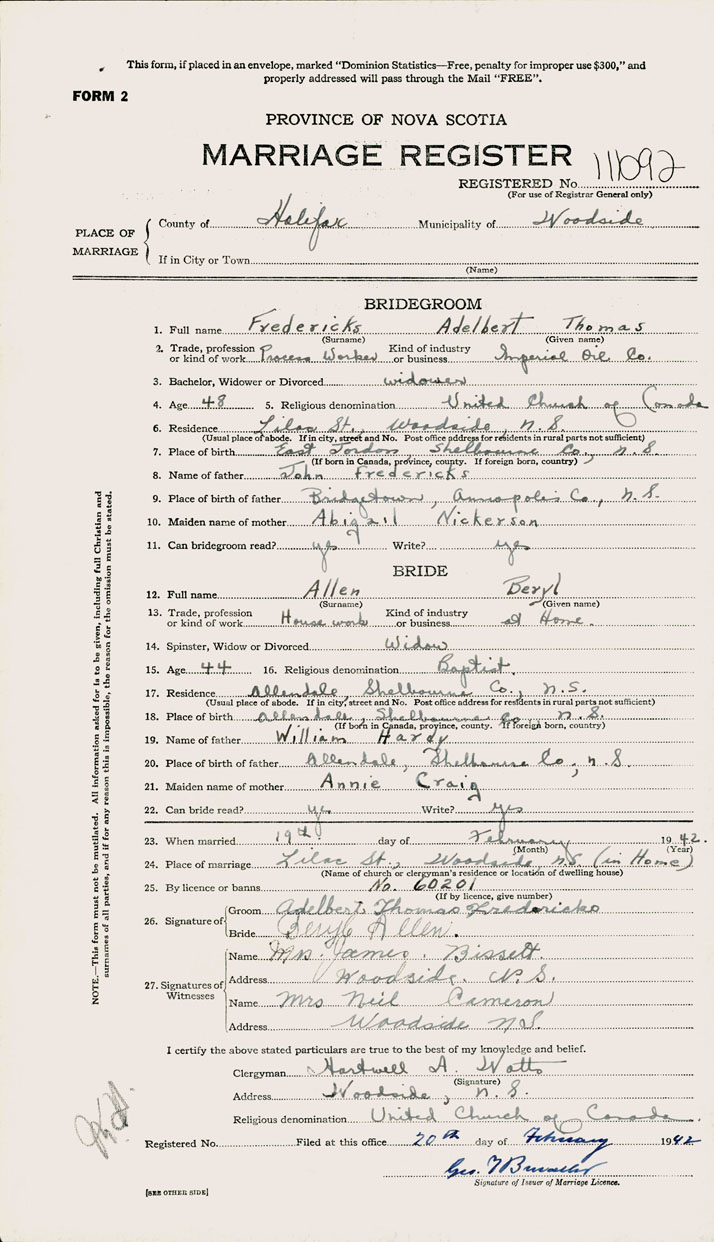 This form, if placed in an envelope, marked "Dominion Statistics—Free, penalty for improper use $300," and
properly addressed will pass through the Mail "FREE".
FORM 2
PROVINCE OF NOVA SCOTIA
MARRIAGE REGISTER
REGISTERED No. 111092
(For use of Registrar General only)
PLACE OF MARRIAGE
County of Halifax Municipality of Woodside
If in City or Town
(Name)
BRIDEGROOM
1. Full name Fredericks Adelbert Thomas
(Surname) (Given name)
2. Trade, profession or kind of work Process Worker Kind of industry or business Imperial Oil Co.
3. Bachelor, Widower or Divorced widower
4. Age 48 5. Religious denomination United Church of Canada
6. Residence Lilac St., Woodside, N.S.
(Usual place of abode. If in city, street and No. Post office address for residents in rural parts not sufficient)
7. Place of birth East Jordon, Shelbourne Co., N.S.
(If born in Canada, province, county. If foreign born, country)
8. Name of father John Fredericks
9. Place of birth of father Bridgetown, Annapolis Co., N.S.
10. Maiden name of mother Abigail Nickerson
11. Can bridegroom read? yes Write? yes
BRIDE
12. Full name Allen Beryl
(Surname) (Given name)
13. Trade, profession or kind of work House work Kind of industry or business at Home.
14. Spinster, Widow or Divorced Widow
15. Age 44 16. Religious denomination Baptist.
17. Residence Allendale, Shelbourne Co., N.S.
(Usual place of abode. If in city, street and No. Post office address for residents in rural parts not sufficient)
18. Place of birth Allendale, Shelbourne Co., N.S.
(If born in Canada, province, county. If foreign born, country)
19. Name of father William Hardy
20. Place of birth of father Allendale, Shelbourne Co, N.S.
21. Maiden name of mother Annie Craig
22. Can bride read? yes Write? yes
23. When married 19th day of February 1942.
(Month) (Year)
24. Place of marriage Lilac St., Woodside, N.S. (in Home)
(Name of church or clergyman's residence or location of dwelling house)
25. By licence or banns No. 60201
(If by licence, give number)
26. Signature of
Groom Adelbert Thomas Fredericks
Bride Beryl Allen.
27. Signatures of Witnesses
Name Mrs. James. Bissett.
Address Woodside. N.S.
Name Mrs Neil Cameron
Address Woodside N.S.
I certify the above stated particulars are true to the best of my knowledge and belief.
Clergyman Hartwell A. Watts
(Signature)
Address Woodside, N.S.
Religious denomination United Church of Canada.
Registered No. Filed at this office 20th day of February 1942
Signature of Issuer of Marriage Licence.
[SEE OTHER SIDE]
NOTE.—This form must not be mutilated. All information asked for is to be given, including full Christian and
surnames of all parties, and if for any reason this is impossible, the reason for the omission must be stated.